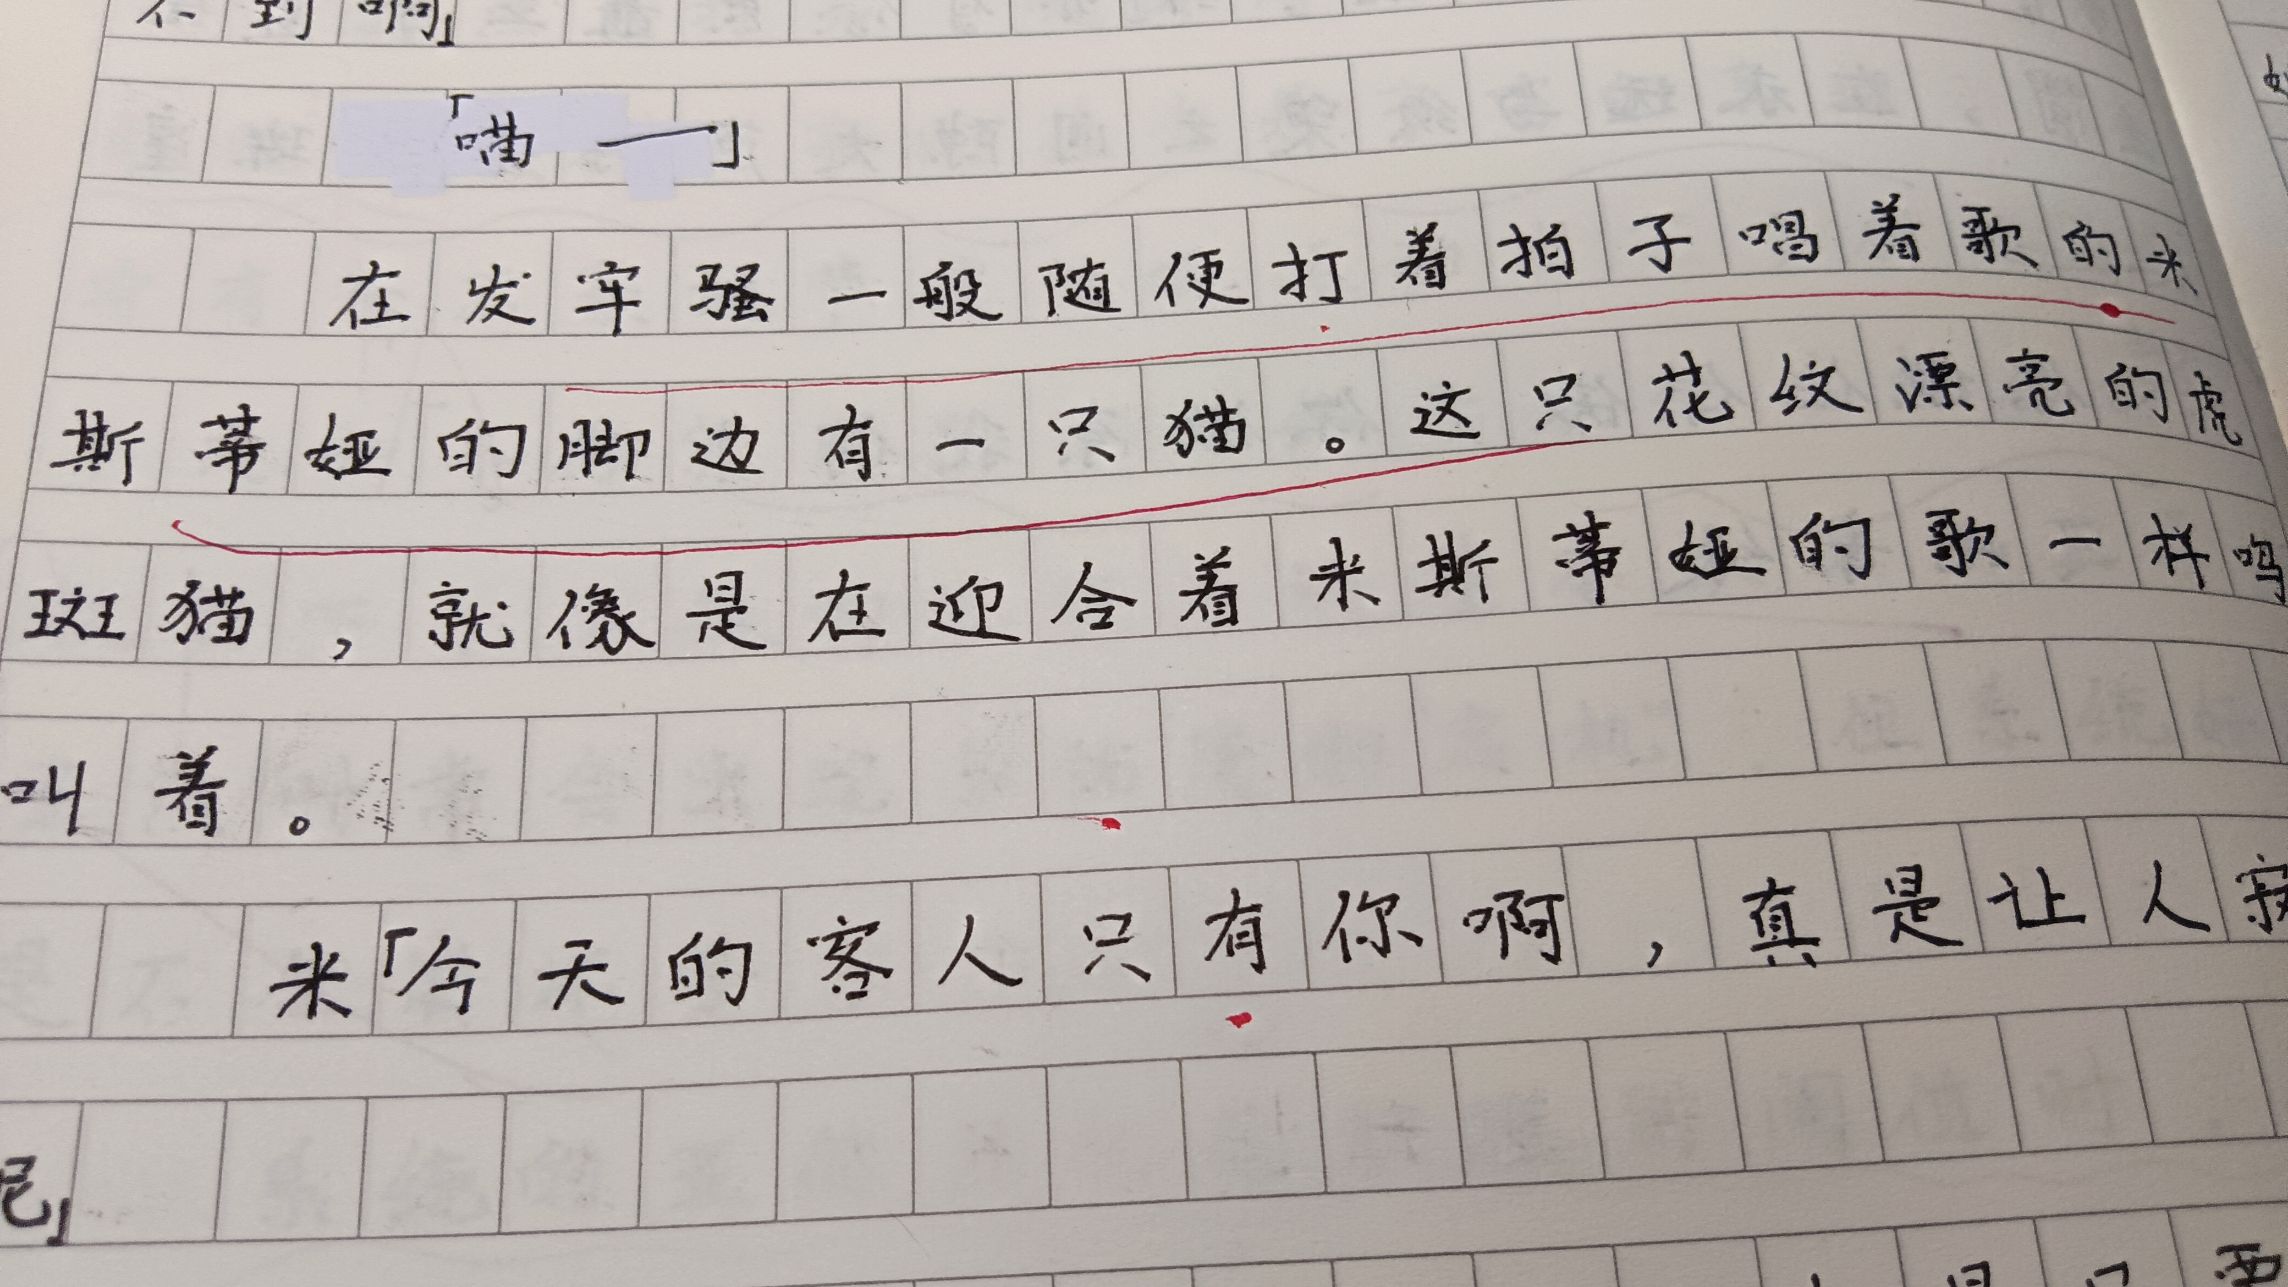 不到啊」
「喵一」
在发牢骚一般随便打着拍子唱着歌的米
斯蒂娅的脚边有一只猫。这只花纹漂亮的虎
斑猫，就像是在迎合着米斯蒂娅的歌一样鸣
叫着。
米「今天的客人只有你啊，真是让人寂
」